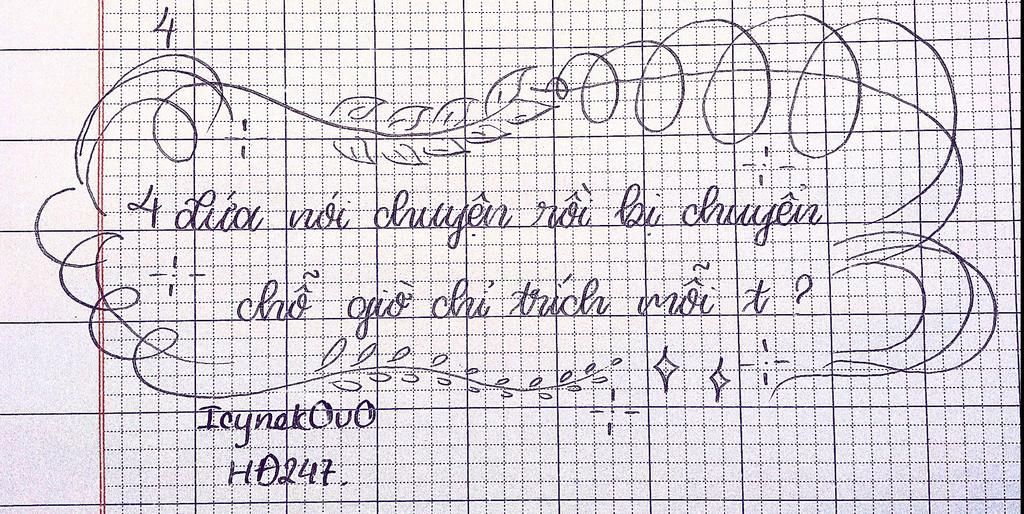 4
4 đứa nói chuyện rồi bị chuyển
chỗ giờ chỉ trích mỗi t ?
IcynekOuO
HĐ247.